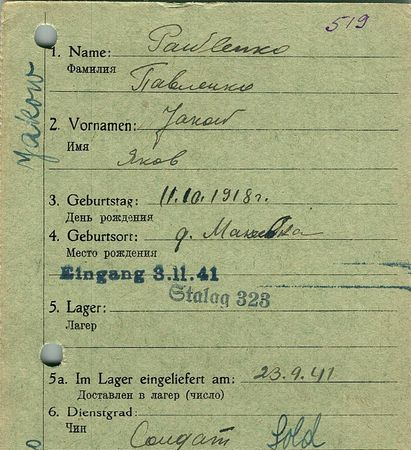 519
1. Name: Pawlenko
Фамилия Павленко
2. Vornamen: Jakow
Имя Яков
Jakow
3. Geburtstag: 11.10.1918 г.
День рождения
4. Geburtsort: д. Макеевка
Место рождения
Eingang 3.11.41
Stalag 323
5. Lager:
Лагерь
5a. Im Lager eingeliefert am: 23.9.41
Доставлен в лагерь (число)
6. Dienstgrad:
Чин Солдат Sold